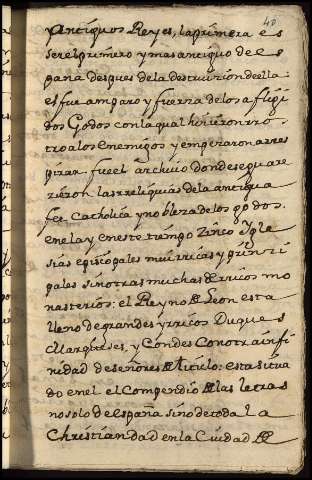 40
Antiguos Reyes, la primera es
ser el primero y mas antiguo de es
paña despues de la destruizion de ella
es fue amparo y fuerza de los afligi
dos Godos con la qual hizieron rro
tro a los enemigos y empezaron a rres
pirar fue el archivo donde se guare
zieron las rreliquias de la antigua
fee Catholica y nobleza de los godos.
enel ay en este tiempo zinco Igle
sias episcopales mui rricas y prinzi
pales sin otras muchas de rricos mo
nasterios: el Reyno de Leon esta
lleno de grandes y rricos Duques
Marqueses, y Condes con otra infi
nidad de señores de titulo: esta situa
do en el el Compendio de las letras
no solo de españa sino de toda la
Christiandad en la Ciudad de